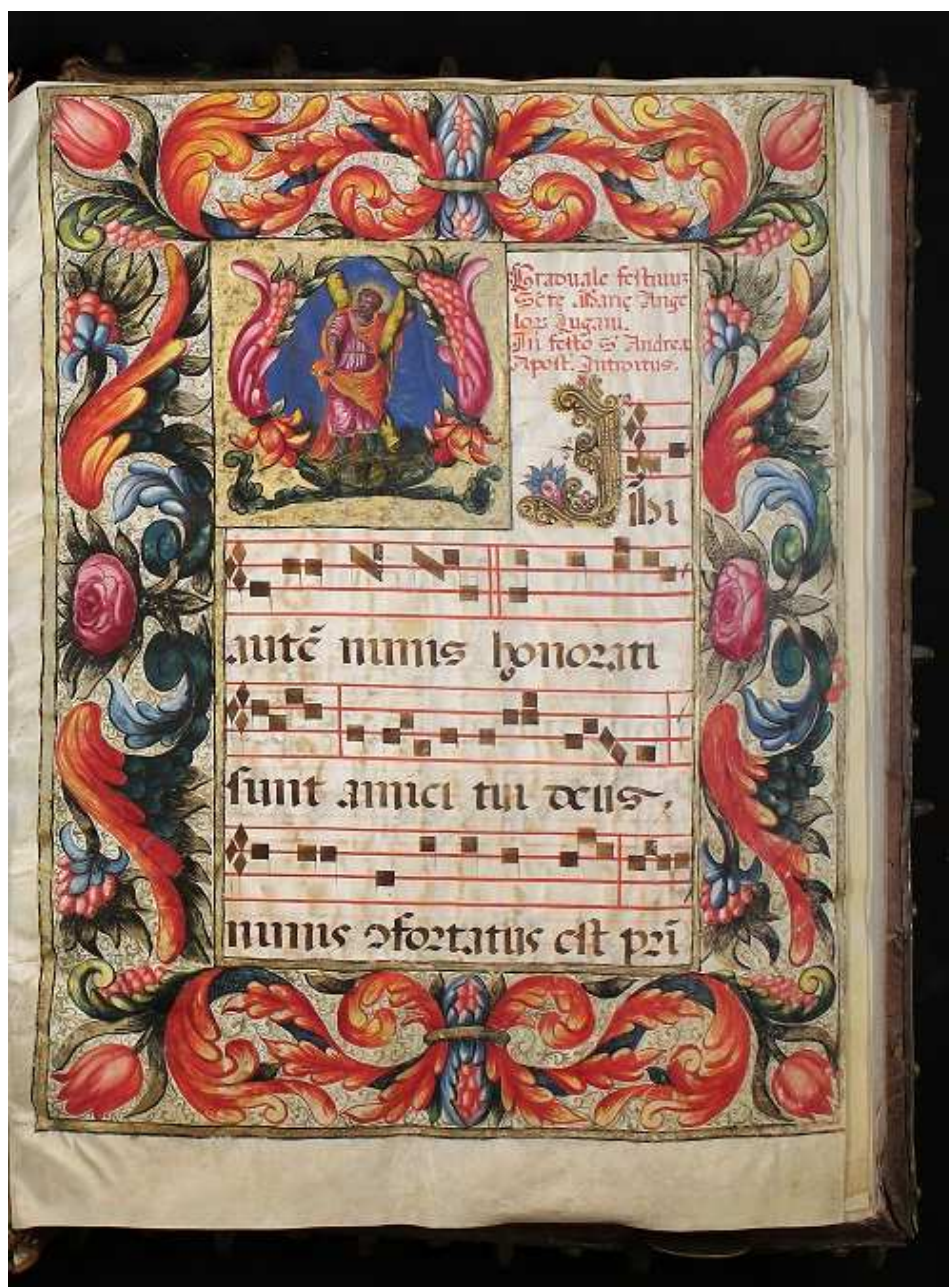 Graduale festiuuz
Scte Marię Ange
lorz Lugani.
In festo S Andreę
Apost. Introitus.
ihi
autē nimis honorati
sunt amici tui deus.
nimis ɔfortatus est pri̅